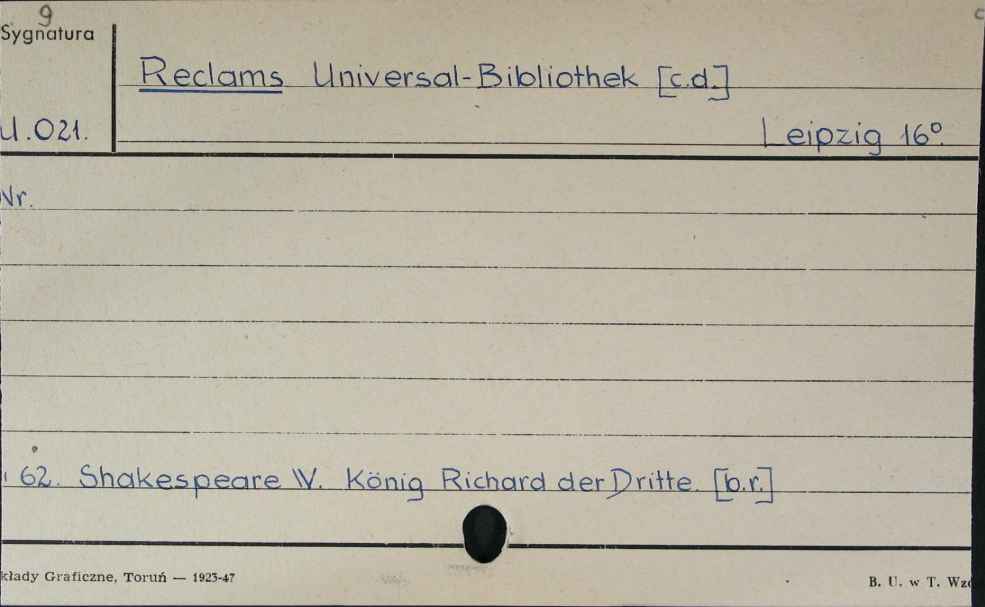 9
Sygnatura
Reclams Universal-Bibliothek [c.d.]
U.021.
Leipzig 16º.
Nr.
62. Shakespeare W. König Richard der Dritte. [b.r.]
kłady Graficzne, Toruń — 1923-47
B. U. w T. Wzó